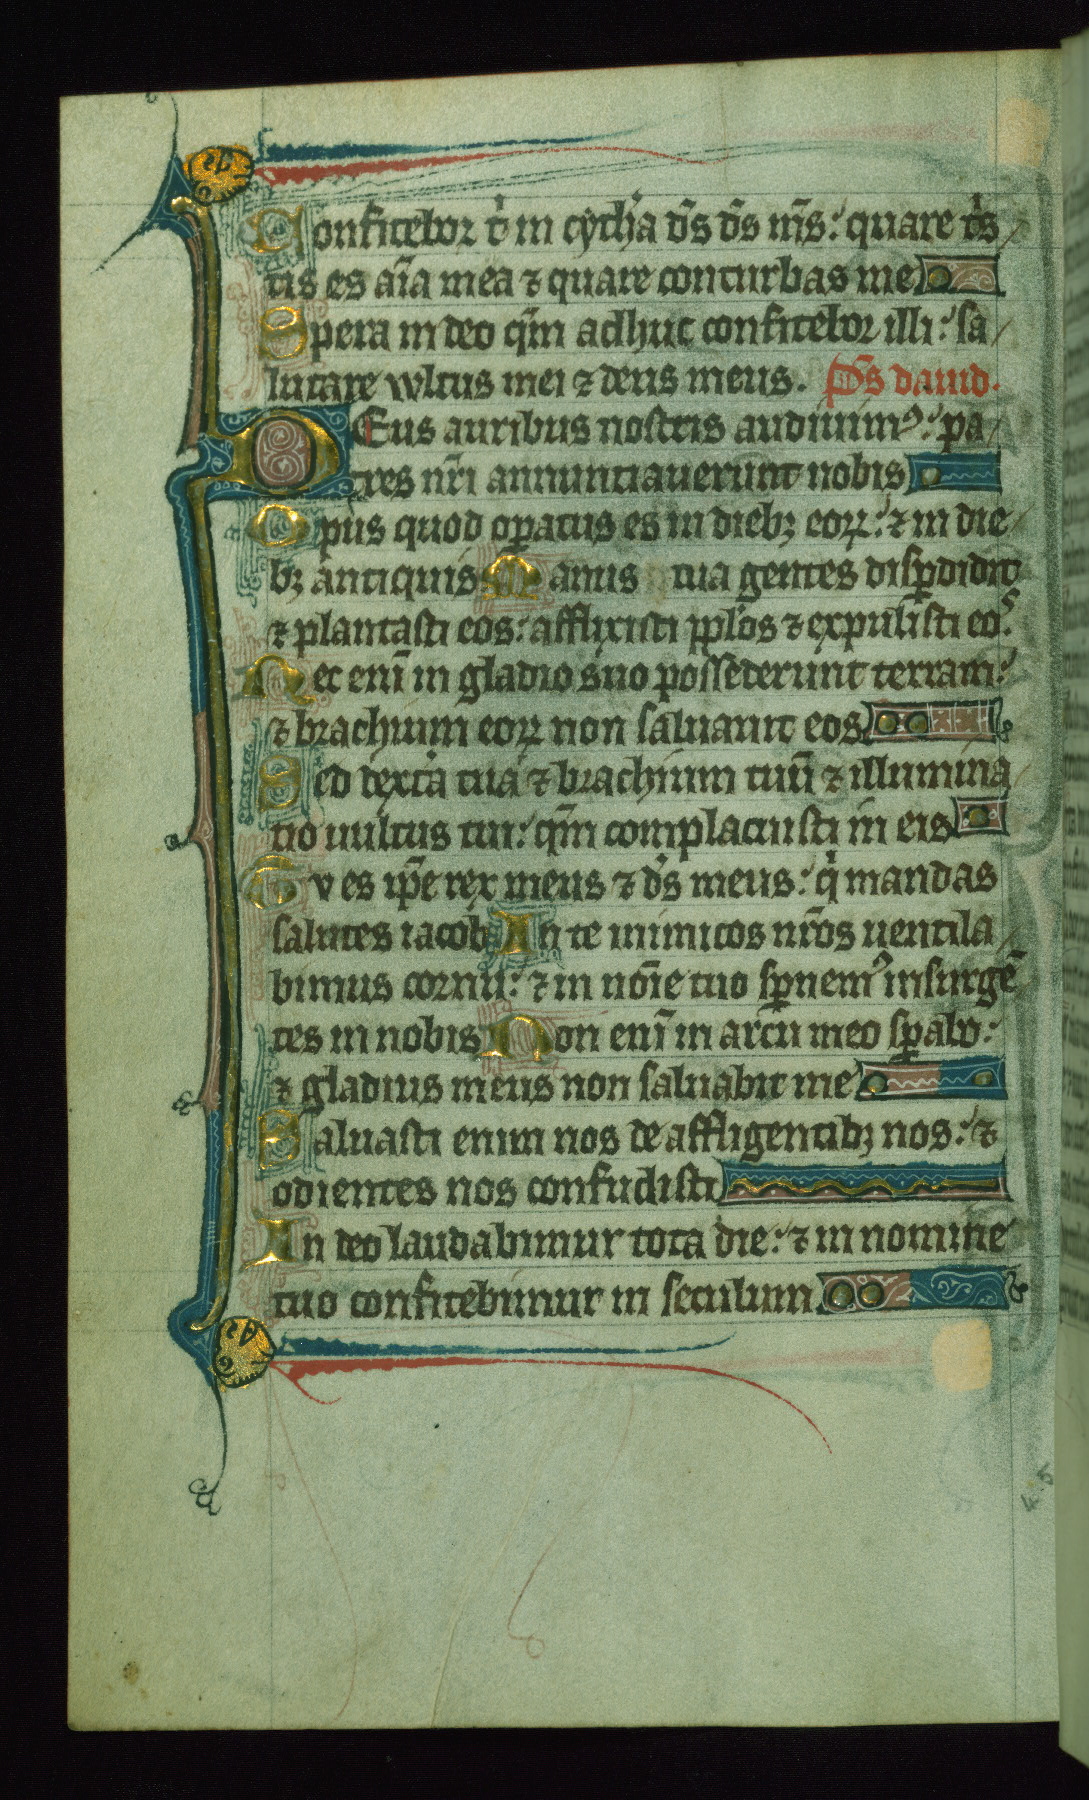 Confitebor t̾ in cyth̾a d̄s d̄s m̄s: quare t̾s
tis es aīa mea ⁊ quare conturbas me
Spera in deo qm̄ adhuc confitebor illi: sa
lutare wltus mei ⁊ deus meus. Ps̄ dauid.
DEus auribus nostris audiuimꝰ: pa
tres nr̄i annuntiauerunt nobis
Opus quod oꝑatus es in diebꝫ eoꝝ: ⁊ in die
bꝫ antiquis Manus tua gentes disꝑdidit
⁊ plantasti eos: afflixisti ppl̄os ⁊ expulisti eos:
Nec enī in gladio suo possederunt terram:
⁊ brachium eoꝝ non saluauit eos
Sed dext̾a tua ⁊ brachium tuū ⁊ illumina
tio uultus tui: qm̄ complacuisti in eis
Tv es ip̄e rex meus ⁊ d̄s meus: q̾ mandas
salutes iacob In te inimicos nr̄os uentila
bimus cornu: ⁊ in noīe tuo sꝑnemꝰ insurgē
tes in nobis Non enī in arcu meo sꝑabo:
⁊ gladius meus non saluabit me
Saluasti enim nos de affligentibꝫ nos: ⁊
odientes nos confudisti
In deo laudabimur tota die: ⁊ in nomine
tuo confitebimur in seculum